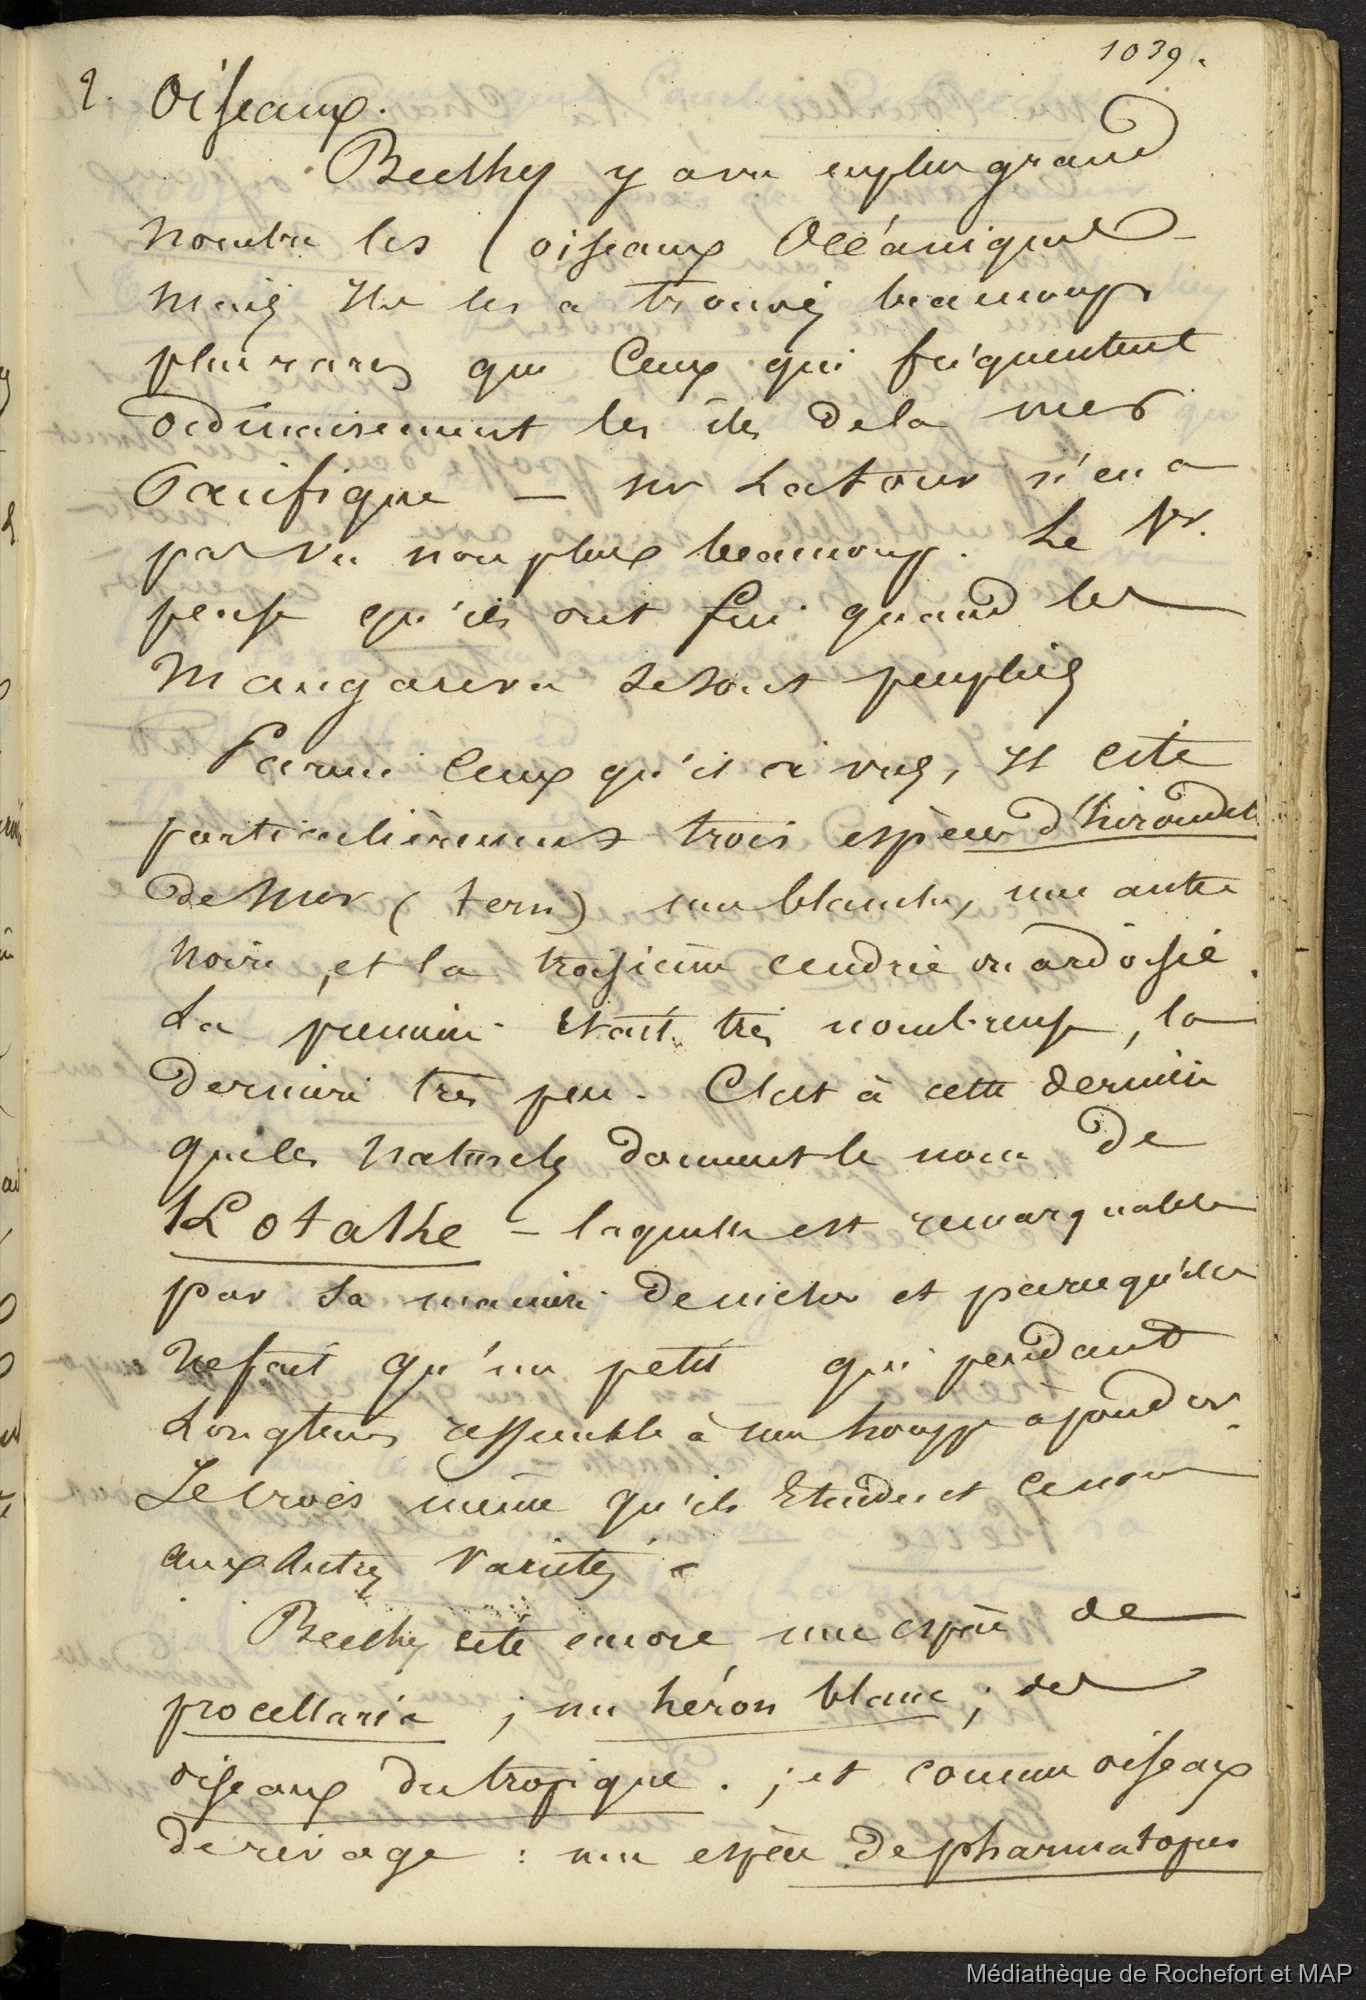 1039.
2. Oiseaux.
Beechey y a vu en plus grand
nombre les oiseaux Océaniques
Mais Il les a trouvés beaucoup
plus rares que Ceux qui fréquentent
ordinairement les îles de la mer
Pacifique — Mr Latour n'en a
pas vu non plus beaucoup. Le Mr.
pense qu'ils ont fui quand les
Mangareva se sont peuplées
Parmi Ceux qu'il a vus, Il cite
particulièrement trois espèces d'hirondel
de mer (tern) une blanche, une autre
noire, et la troisième cendrée ou ardoisée.
La première était très nombreuse, la
dernière très peu. C'est à cette dernière
que les naturels donnent le nom de
Kotake – laquelle est remarquable
par sa manière de nicher et parcequ'elle
ne fait qu'un petit qui pendant
Longtems ressemble à une houppe à poudrer.
Je crois même qu'ils Etendent ce nom
aux Autres variétés.
Beechey cite encore une espèce de
procellaria ; un héron blanc ; des
oiseaux du tropique. ; et comme oiseaux
de rivage : une espèce de pharmatopus
Médiathèque de Rochefort et MAP